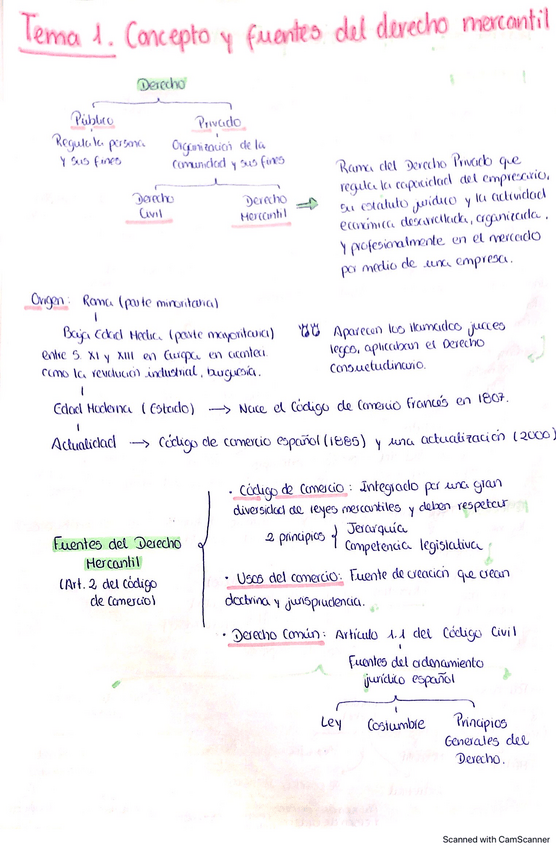 Tema 1. Concepto y fuentes del derecho mercantil
Derecho
Público
Privado
Regula la persona
y sus fines
Organización de la
comunidad y sus fines
Derecho
Civil
Derecho
Mercantil
Rama del Derecho Privado que
regula la capacidad del empresario,
su estatuto jurídico y la actividad
económica desarrollada, organizada,
y profesionalmente en el mercado
por medio de una empresa.
Origen: Roma (parte minoritaria)
Baja Edad Media (parte mayoritaria)
entre S. XI y XIII en Europa en
como la revolución industrial, burguesía.
Aparecen los llamados jueces
legos, aplicaban el Derecho
consuetudinario.
Edad Moderna (Estado) → Nace el Código de Comercio Francés en 1807.
Actualidad → Código de comercio español (1885) y una actualización (2000)
Fuentes del Derecho
Mercantil
(Art. 2 del código
de Comercio)
· Código de Comercio: Integrado por una gran
diversidad de leyes mercantiles y deben respetar
2 principios { Jerarquía
Competencia legislativa
· Usos del comercio: Fuente de creación que crean
doctrina y jurisprudencia.
· Derecho Común: Artículo 1.1 del Código Civil
Fuentes del ordenamiento
jurídico español
Ley
Costumbre
Principios
Generales del
Derecho.
Scanned with CamScanner